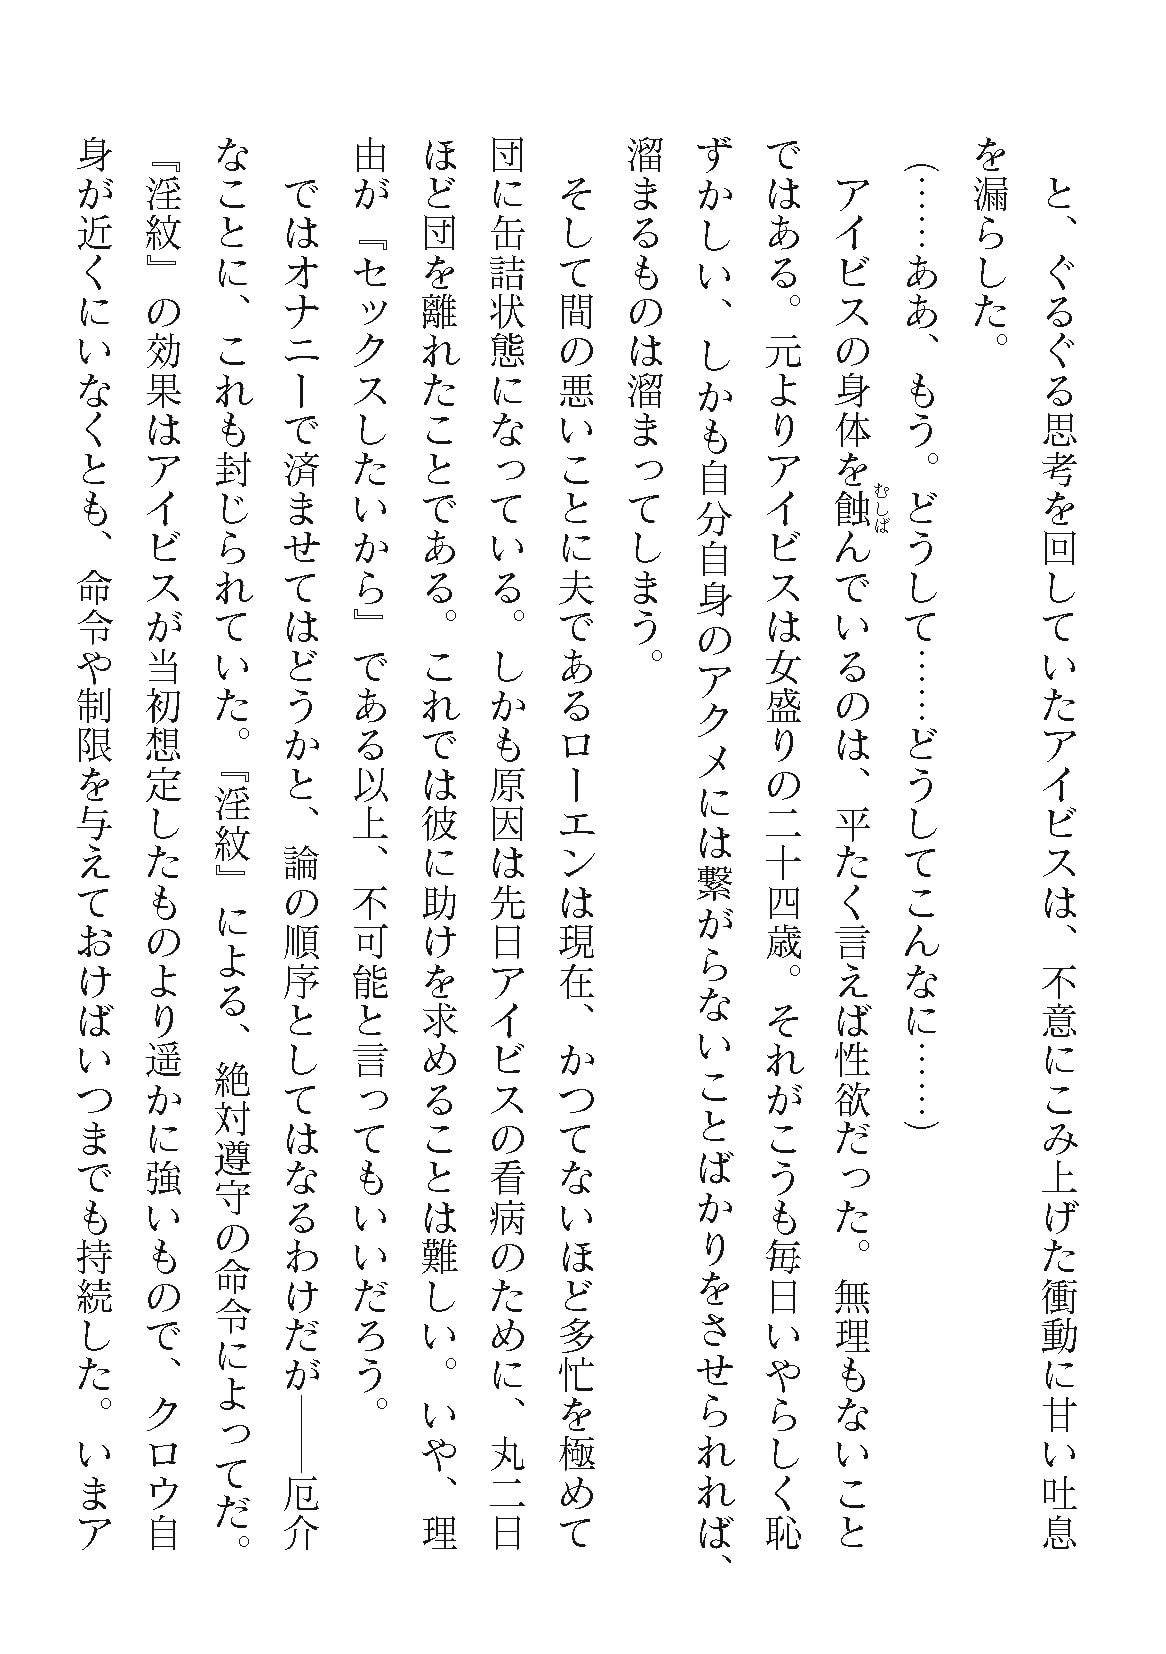 と、ぐるぐる思考を回していたアイビスは、不意にこみ上げた衝動に甘い吐息
を漏らした。
（……ああ、もう。どうして……どうしてこんなに……）
アイビスの身体を蝕んでいるのは、平たく言えば性欲だった。無理もないこと
むしば
ではある。元よりアイビスは女盛りの二十四歳。それがこうも毎日いやらしく恥
ずかしい、しかも自分自身のアクメには繋がらないことばかりをさせられれば、
溜まるものは溜まってしまう。
そして間の悪いことに夫であるローエンは現在、かつてないほど多忙を極めて
団に缶詰状態になっている。しかも原因は先日アイビスの看病のために、丸二日
ほど団を離れたことである。これでは彼に助けを求めることは難しい。いや、理
由が『セックスしたいから』である以上、不可能と言ってもいいだろう。
ではオナニーで済ませてはどうかと、論の順序としてはなるわけだが――厄介
なことに、これも封じられていた。『淫紋』による、絶対遵守の命令によってだ。
『淫紋』の効果はアイビスが当初想定したものより遥かに強いもので、クロウ自
身が近くにいなくとも、命令や制限を与えておけばいつまでも持続した。いまア